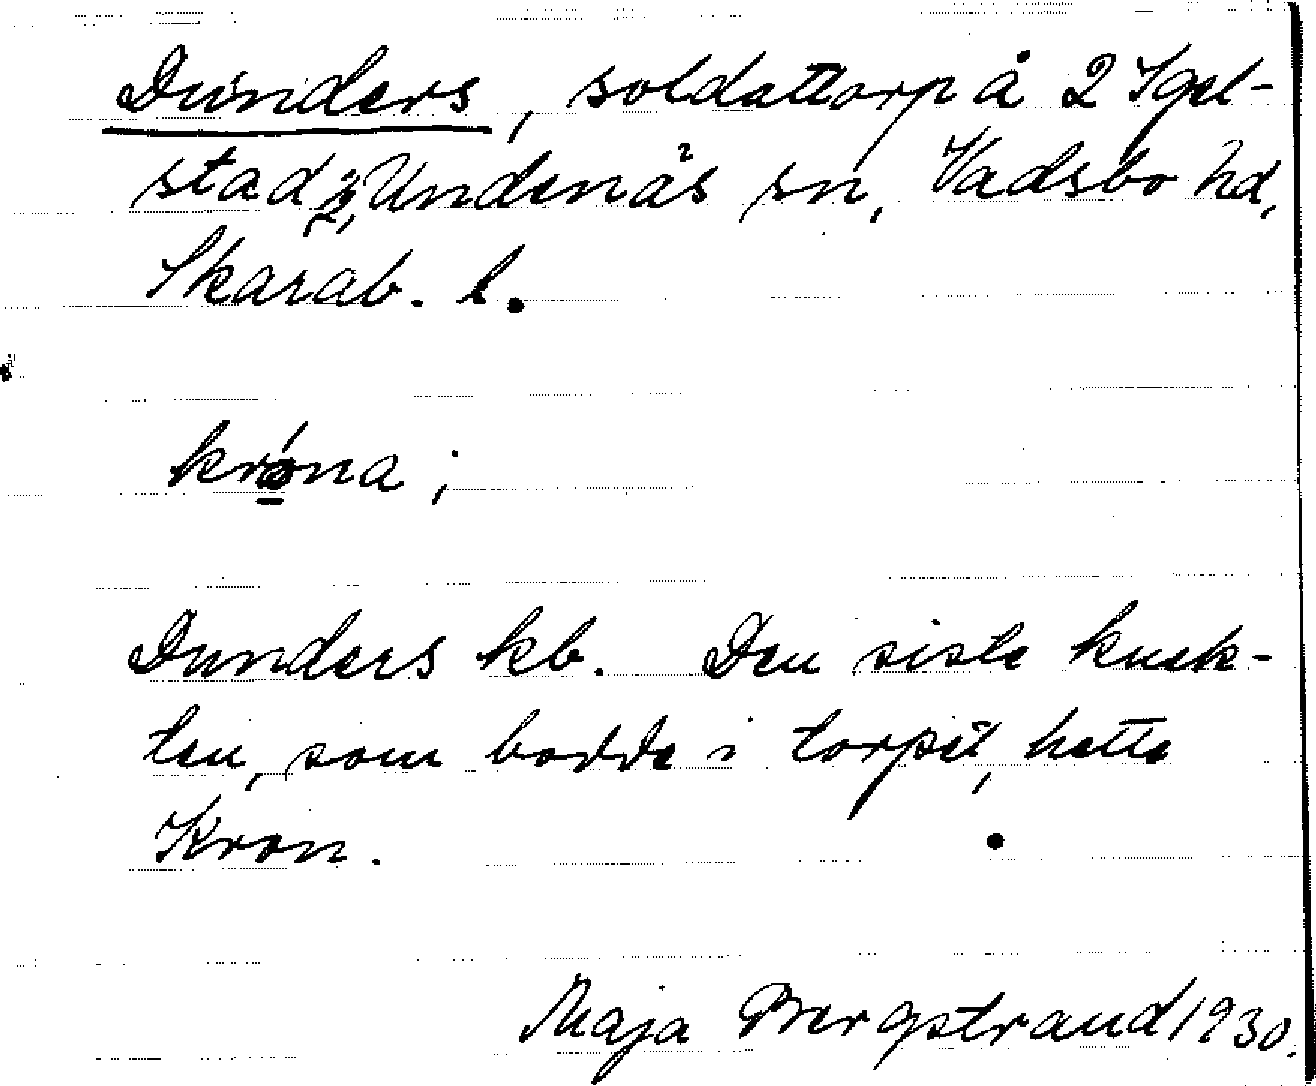 Dunders, soldattorp å 2 Igel-
stad 2, Undenäs sn, Vadsbo hd,
Skarab. l.
króna;
Dunders kb. Den siste knek-
ten, som bodde i torpet, hette
Kron.
Maja Bergstrand 1930.